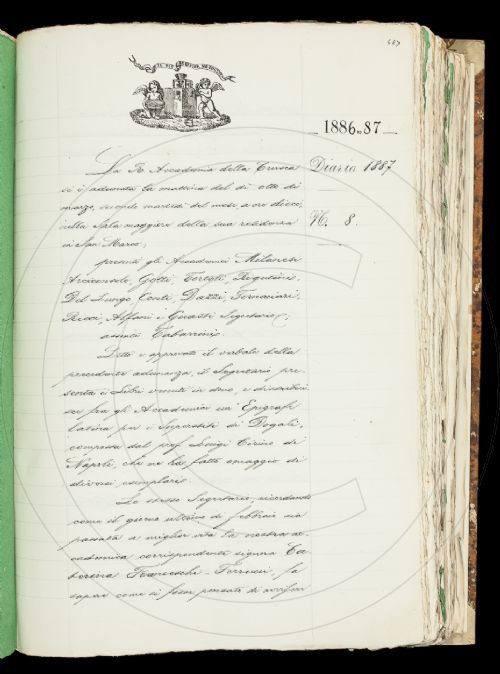 487
IL PIÙ BEL FIOR NE COGLIE
1886-87
La R. Accademia della Crusca
Diario 1887
si è adunata la mattina del dì otto di
marzo, secondo martedì del mese, a ore dieci,
N. 8.
nella Sala maggiore della sua residenza
in San Marco;
presenti gli Accademici Milanesi
Arciconsolo, Gotti, Tortoli, Rigutini,
Del Lungo, Conti, Dazzi, Fornaciari,
Ricci, Alfani e Guasti Segretario;
assente Tabarrini.
Letto e approvato il verbale della
precedente adunanza, il Segretario pre-
senta i Libri venuti in dono, e distribui-
sce fra gli Accademici un' Epigrafe
latina per i Superstiti di Dogali,
composta dal prof. Luigi di
Napoli, che ne ha fatto omaggio di
diversi esemplari.
Lo stesso Segretario, ricordando
come il giorno ultimo di febbraio sia
passata a miglior vita la nostra ac-
cademica corrispondente signora Ca-
terina Franceschi-Ferrucci, fa
sapere come si fosse pensato di